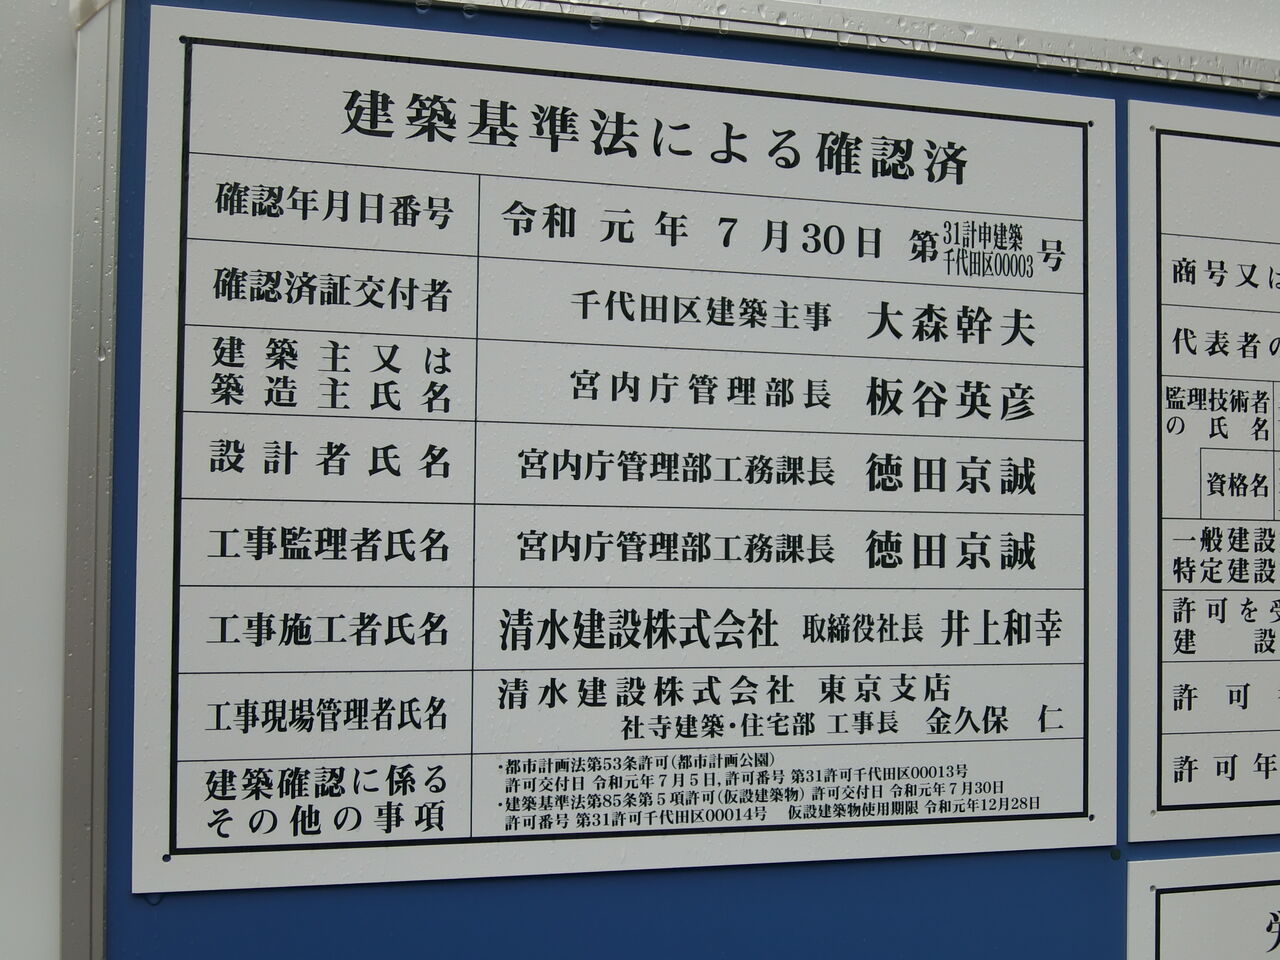 建築基準法による確認済
確認年月日番号
令和 元 年 7 月 30 日 第 31計申建築 千代田区00003 号
確認済証交付者
千代田区建築主事 大森幹夫
建築主又は
築造主氏名
宮内庁管理部長 板谷英彦
設計者氏名
宮内庁管理部工務課長 徳田京誠
工事監理者氏名
宮内庁管理部工務課長 徳田京誠
工事施工者氏名
清水建設株式会社 取締役社長 井上和幸
工事現場管理者氏名
清水建設株式会社 東京支店
社寺建築・住宅部 工事長 金久保 仁
建築確認に係る
その他の事項
・都市計画法第53条許可(都市計画公園)
許可交付日 令和元年7月5日, 許可番号 第31許可千代田区00013号
・建築基準法第85条第5項許可(仮設建築物) 許可交付日 令和元年7月30日
許可番号 第31許可千代田区00014号 仮設建築物使用期限 令和元年12月28日
商号又は
代表者の
監理技術者
の氏名
資格名
一般建設
特定建設
許可を受
建設
許可
許可年